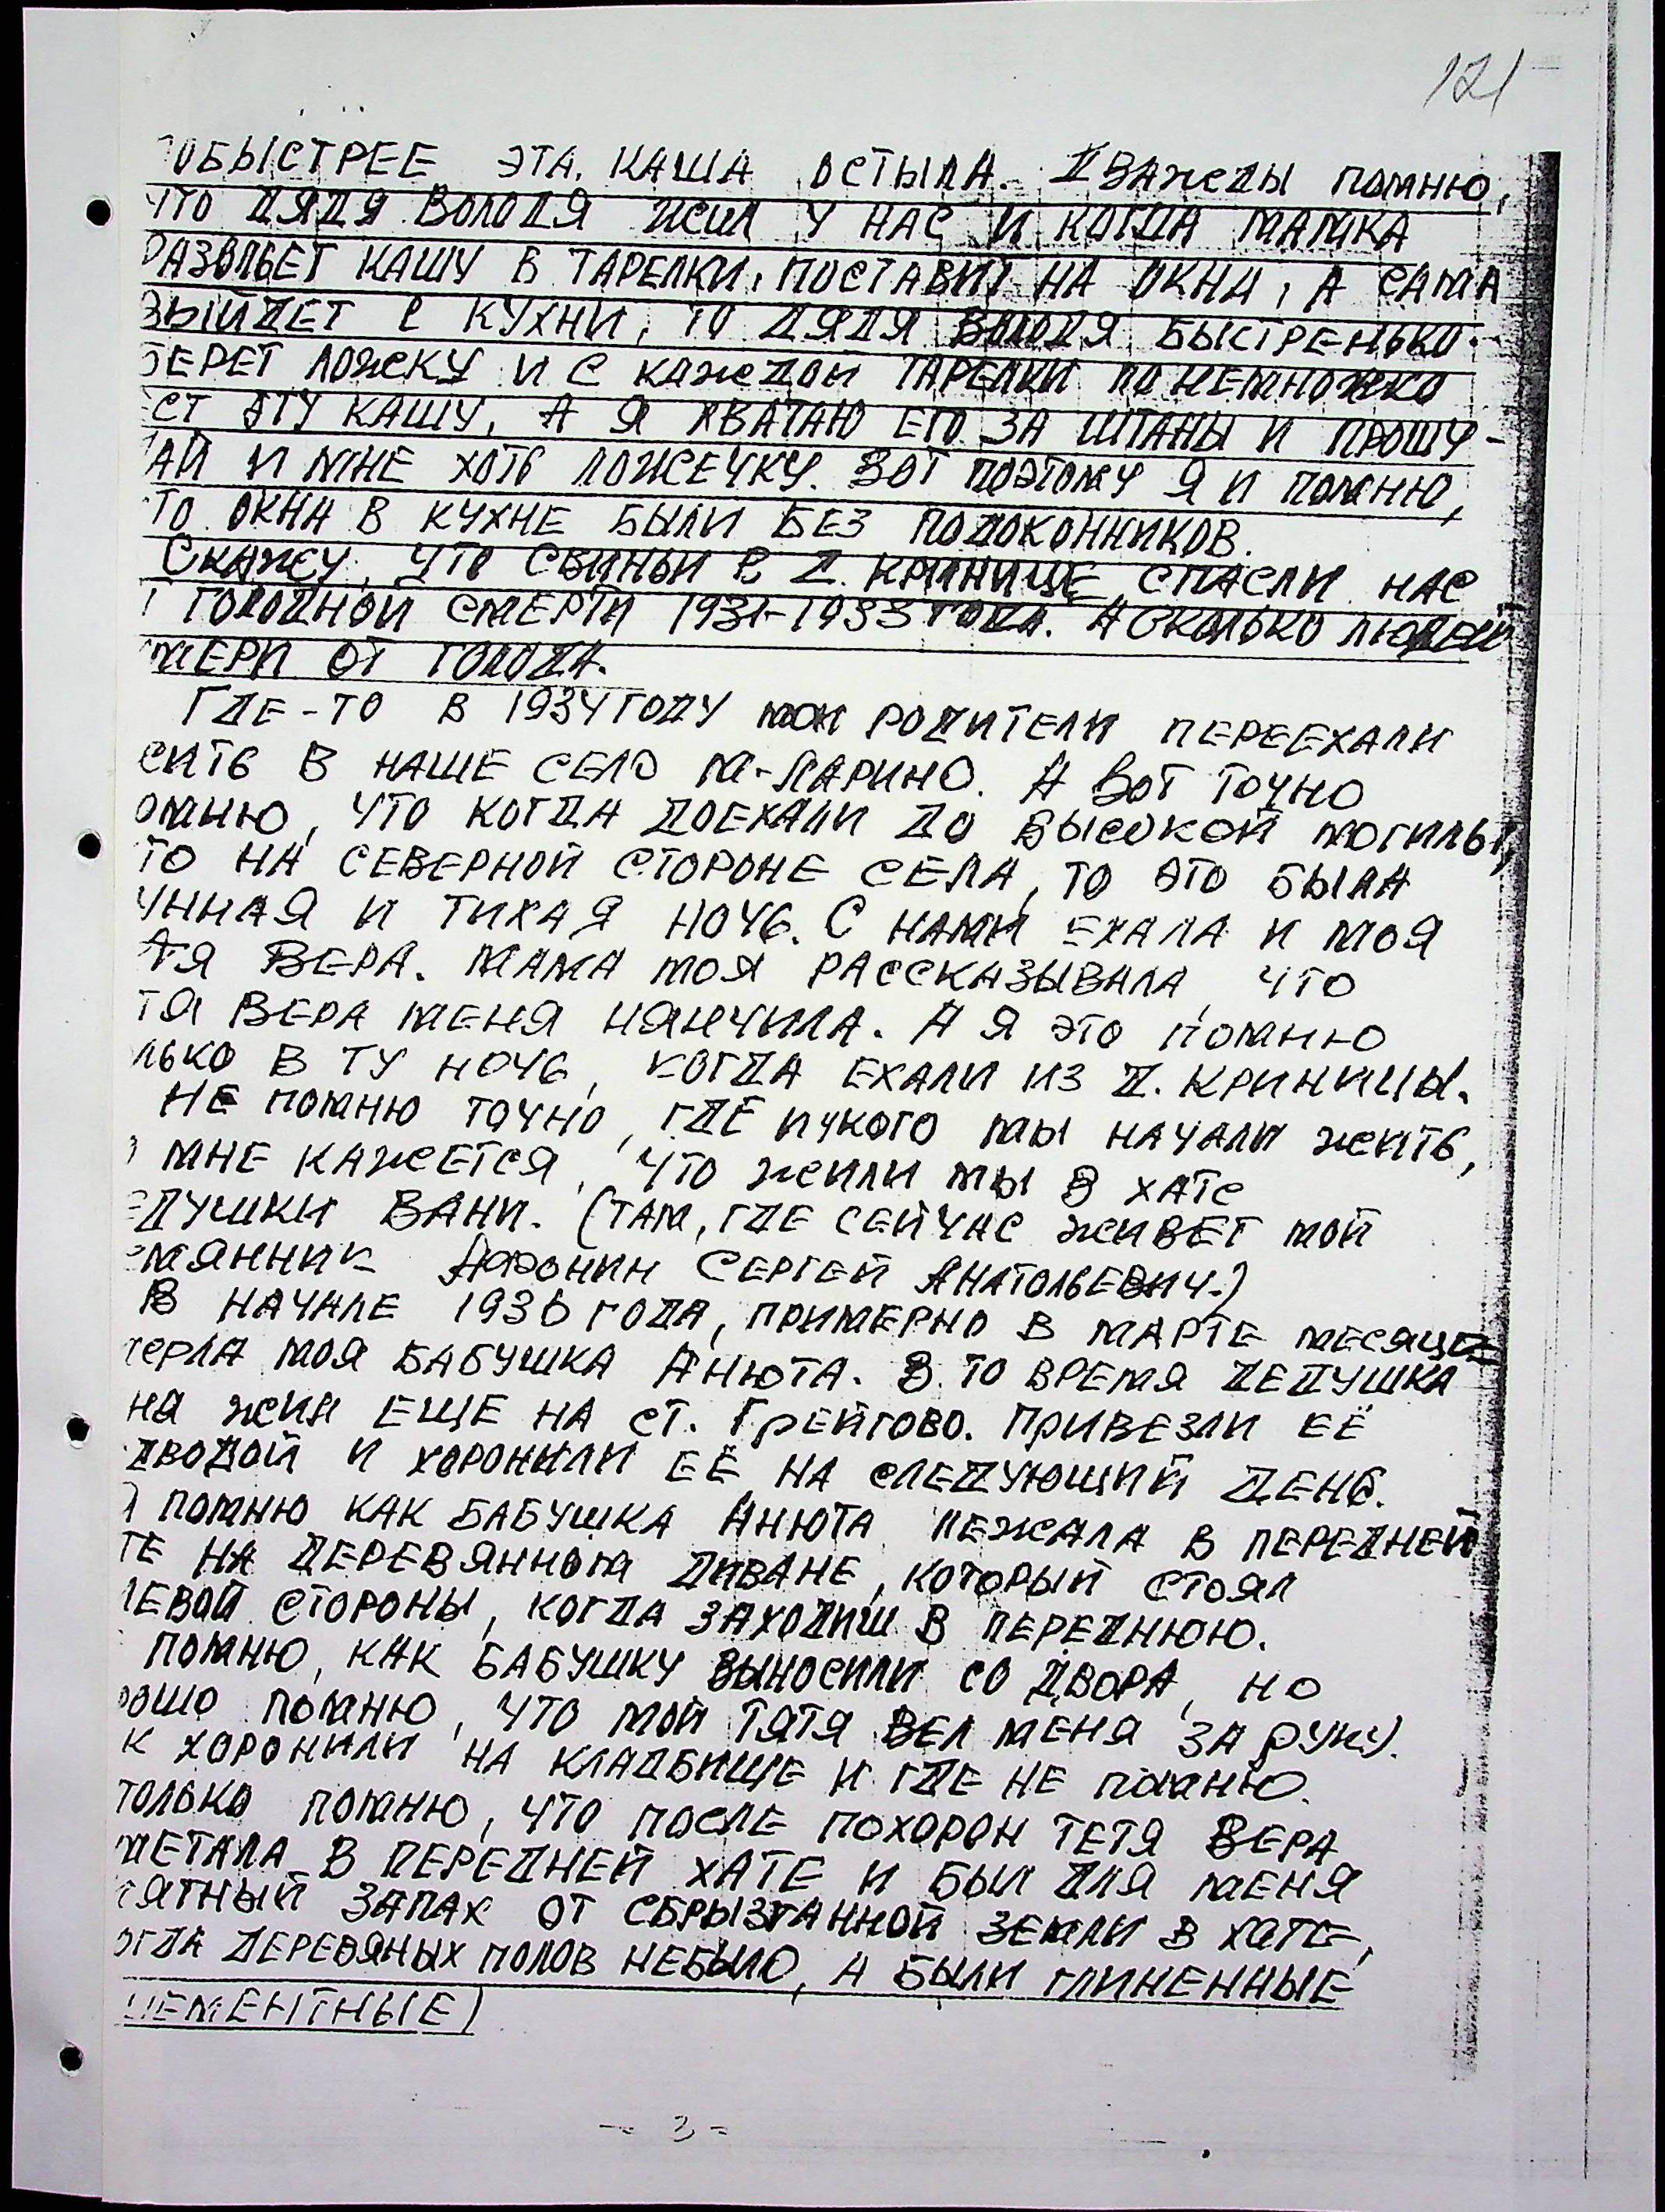 121
ОБЫСТРЕЕ ЭТА КАША ОСТЫЛА. ДВАЖДЫ ПОМНЮ,
ЧТО ДЯДЯ ВОЛОДЯ ЖИЛ У НАС И КОГДА МАМКА
РАЗОЛЬЕТ КАШУ В ТАРЕЛКИ, ПОСТАВИТ НА ОКНА, А САМА
ВЫЙДЕТ С КУХНИ, ТО ДЯДЯ ВОЛОДЯ БЫСТРЕНЬКО
БЕРЕТ ЛОЖКУ И С КАЖДОЙ ТАРЕЛКИ ПОНЕМНОЖКО
ЕСТ ЭТУ КАШУ, А Я ХВАТАЮ ЕГО ЗА ШТАНЫ И ПРОШУ -
АЙ И МНЕ ХОТЬ ЛОЖЕЧКУ. ВОТ ПОЭТОМУ Я И ПОМНЮ,
ТО ОКНА В КУХНЕ БЫЛИ БЕЗ ПОДОКОННИКОВ.
СКАЖУ, ЧТО СВИНЬИ В Д. КРИНИЦЕ СПАСЛИ НАС
Т ГОЛОДНОЙ СМЕРТИ 1931-1933 ГОДА. А СКОЛЬКО ЛЮДЕЙ
МЕРЛИ ОТ ГОЛОДА.
ГДЕ-ТО В 1934 ГОДУ МОИ РОДИТЕЛИ ПЕРЕЕХАЛИ
ЖИТЬ В НАШЕ СЕЛО М-ЛАРИНО. А ВОТ ТОЧНО
ОМНЮ, ЧТО КОГДА ДОЕХАЛИ ДО ВЫСОКОЙ МОГИЛЫ,
ТО НА СЕВЕРНОЙ СТОРОНЕ СЕЛА, ТО ЭТО БЫЛА
УННАЯ И ТИХАЯ НОЧЬ. С НАМИ ЕХАЛА И МОЯ
ТЯ ВЕРА. МАМА МОЯ РАССКАЗЫВАЛА, ЧТО
ТЯ ВЕРА МЕНЯ НЯНЧИЛА. А Я ЭТО ПОМНЮ
ЛЬКО В ТУ НОЧЬ, КОГДА ЕХАЛИ ИЗ Д. КРИНИЦЫ.
НЕ ПОМНЮ ТОЧНО, ГДЕ И УКОГО МЫ НАЧАЛИ ЖИТЬ,
МНЕ КАЖЕТСЯ, ЧТО ЖИЛИ МЫ В ХАТЕ
ЕДУШКИ ВАНИ. (ТАМ, ГДЕ СЕЙЧАС ЖИВЕТ МОЙ
ЕМЯННИК АФОНИН СЕРГЕЙ АНАТОЛЬЕВИЧ.)
В НАЧАЛЕ 1936 ГОДА, ПРИМЕРНО В МАРТЕ МЕСЯЦЕ
МЕРЛА МОЯ БАБУШКА АНЮТА. В ТО ВРЕМЯ ДЕДУШКА
НЯ ЖИЛ ЕЩЕ НА СТ. ГРЕЙГОВО. ПРИВЕЗЛИ ЕЁ
ДВОДОЙ И ХОРОНИЛИ ЕЁ НА СЛЕДУЮЩИЙ ДЕНЬ.
Я ПОМНЮ КАК БАБУШКА АНЮТА ЛЕЖАЛА В ПЕРЕДНЕЙ
ТЕ НА ДЕРЕВЯННОМ ДИВАНЕ, КОТОРЫЙ СТОЯЛ
ЛЕВОЙ СТОРОНЫ, КОГДА ЗАХОДИШ В ПЕРЕДНЮЮ.
ПОМНЮ, КАК БАБУШКУ ВЫНОСИЛИ СО ДВОРА, НО
ОШО ПОМНЮ, ЧТО МОЙ ТЯТЯ ВЕЛ МЕНЯ ЗА РУКУ.
К ХОРОНИЛИ НА КЛАДБИЩЕ И ГДЕ НЕ ПОМНЮ.
ТОЛЬКО ПОМНЮ, ЧТО ПОСЛЕ ПОХОРОН ТЕТЯ ВЕРА
МЕТАЛА В ПЕРЕДНЕЙ ХАТЕ И БЫЛ ДЛЯ МЕНЯ
ЯТНЫЙ ЗАПАХ ОТ СБРЫЗГАННОЙ ЗЕМЛИ В ХАТЕ,
ОГДА ДЕРЕВЯНЫХ ПОЛОВ НЕБЫЛО, А БЫЛИ ГЛИНЕННЫЕ
ЦЕМЕНТНЫЕ)
- 3 -